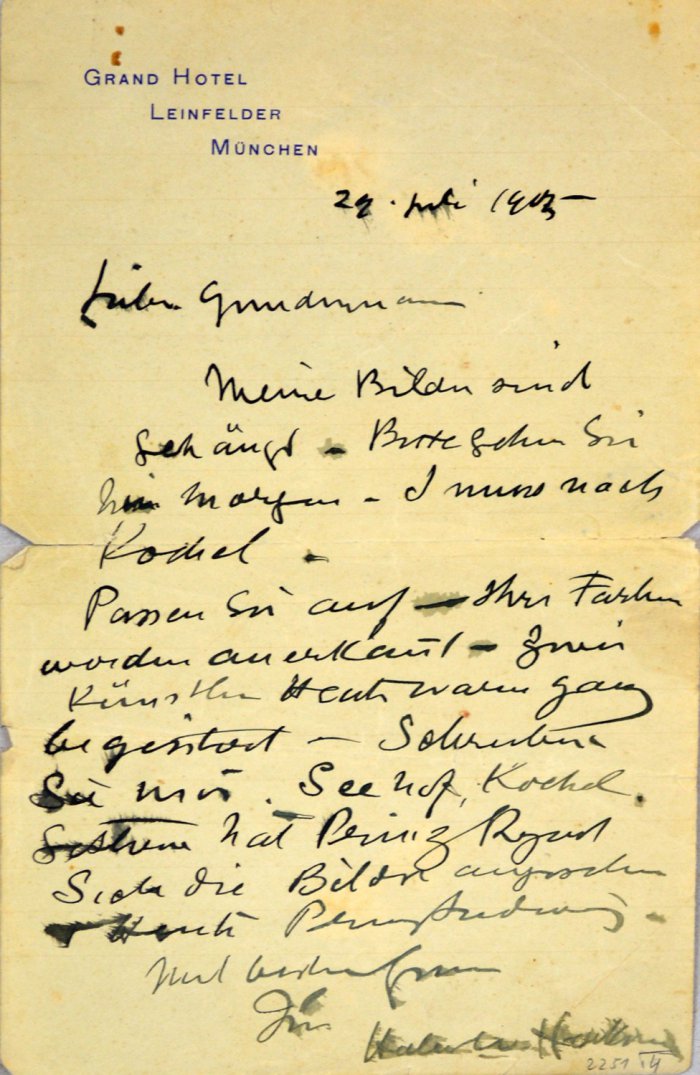 GRAND HOTEL
LEINFELDER
MÜNCHEN
29. Juli 1905
Lieber Grundmann
Meine Bilder sind
gehängt – Bitte gehen Sie
hin morgen – I muss nach
Kochel –
Passen Sie auf – Ihre Farben
werden anerkannt – Zwei
Künstler Heute waren ganz
begeistert – Schreiben
Sie mir. Seehof, Kochel.
Gestern hat Prinz Regent
Sich die Bilder angesehen
Heute Prinz Ludwig –
Mit besten
Ihr
2251 IV